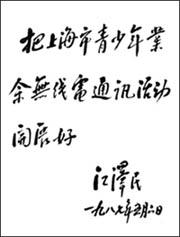 把上海市青少年業
余無线電通訊活动
開展好
江澤民
一九八七年五月六日